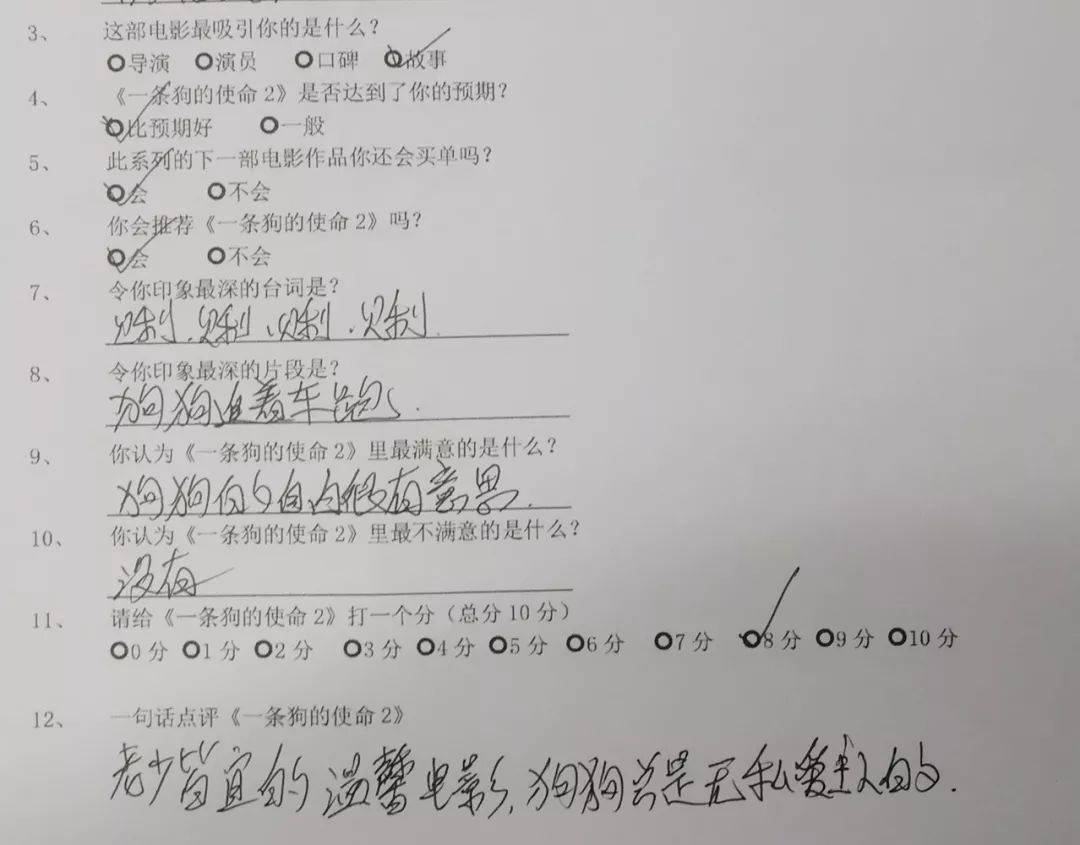 3、 这部电影最吸引你的是什么？
导演 演员 口碑 故事
4、 《一条狗的使命 2》是否达到了你的预期？
比预期好 一般
5、 此系列的下一部电影作品你还会买单吗？
会 不会
6、 你会推荐《一条狗的使命 2》吗？
会 不会
7、 令你印象最深的台词是？
贝利.贝利.贝利.贝利.
8、 令你印象最深的片段是？
狗狗追着车跑.
9、 你认为《一条狗的使命 2》里最满意的是什么？
狗狗的旁白很有意思.
10、 你认为《一条狗的使命 2》里最不满意的是什么？
没有
11、 请给《一条狗的使命 2》打一个分（总分 10 分）
0 分 1 分 2 分 3 分 4 分 5 分 6 分 7 分 8 分 9 分 10 分
12、 一句话点评《一条狗的使命 2》
老少皆宜的温馨电影,狗狗总是无私爱主人的.